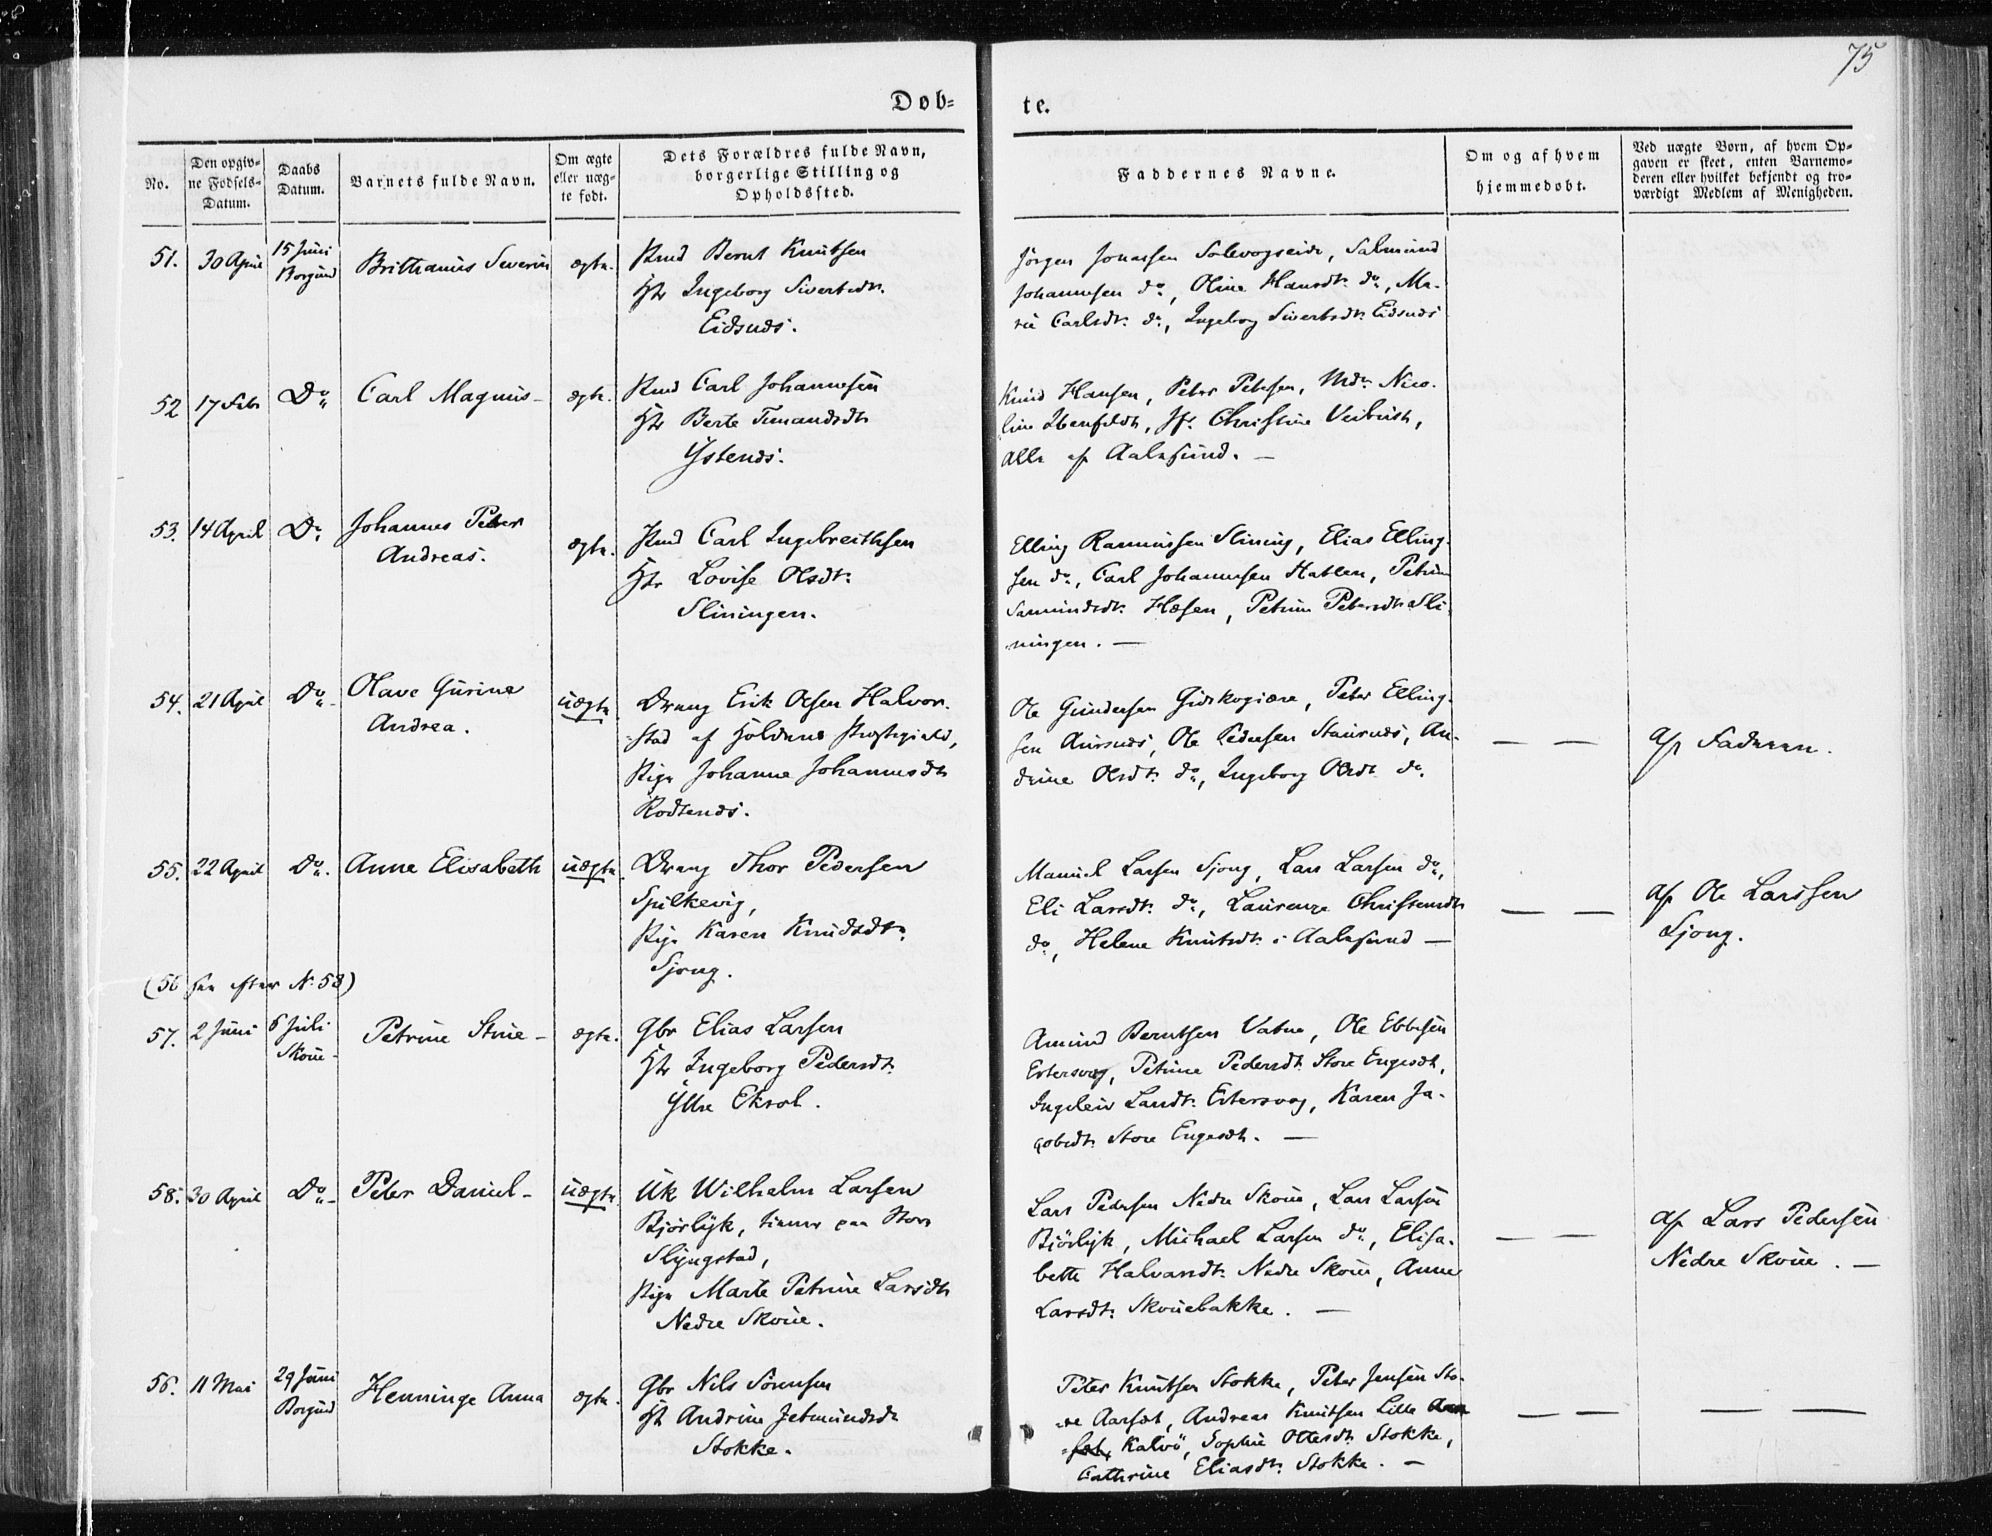 75
Døb-
te.
No.
Den opgiv-
ne Fødsels-
Datum.
Daabs
Datum.
Barnets fulde Navn.
Om ægte
eller uæg-
te født.
Dets Forældres fulde Navn,
borgerlige Stilling og
Opholdssted.
Faddernes Navne.
Om og af hvem
hjemmedøbt.
Ved uægte Børn, af hvem Op-
gaven er skeet, enten Barnemo-
deren eller hvilket bekjendt og tro-
værdigt Medlem af Menigheden.
51.
30 April
15 Juni
Borgund
Brithanius Severin
ægte.
Bernt Knutsen
Ingeborg Sivertsdtr.
Eidsnds.
Jørgen Jonassen Solevogseide, Salmund
Johannesen do, Oline Hansdtr. do, Ma-
rie Carlsdtr. do, Ingeborg Sivertsdtr. Eidsnds
52
17 Febr
Do
Carl Magnus-
ægte.
Carl Johannesen
Berte
Ystends.
Knud Hansen, Peter Petersen, Mdm Nico-
line, Jfr. Christine Veibust,
alle af Aalesund. —
53.
14 April
Do
Johannes Peter
Andreas.
ægte.
Carl Ingebreithsen
Lovise Olsdtr.
Sliningen.
Elling Rasmussen Slining, Elias Elling-
sen do, Carl Johannesen Hatlen, Petrine
Hesen, Petrine Petersdtr Sli-
ningen. —
54.
21 April
Do
Olave Gurine
Andrea.
uægte.
Dreng Erik Olsen Halvor-
stad af Præstegield,
Pige Johanne Johannesdtr
Rødsends.
Ole Gundersen, Peter Elling-
sen Aursnes, Ole Pedersen Staursnes, An-
drine Olsdtr. do, Ingeborg Olsdtr. do.
— —
af Faderen.
55.
22 April
Do.
Anne Elisabeth
uægte.
Dreng Thor Pedersen
Spilkevig,
Pige Karen Knudsdtr.
Sjong.
Larsen Sjong, Lars Larsen do,
Eli Larsdtr. do, Laurenze Christensdtr
do, Helene Knutsdtr. i Aalesund —
— —
af Ole Larssen
Sjong.
(56 see efter No. 58)
57.
2 Juni
6 Juli
Skoue-
Petrine Stine-
ægte.
Gbr Elias Larsen
Ingeborg Pedersdtr.
Yttre Ekrol.
Amund Berntsen Vatne, Ole Ebbesen
Eltersvog, Petrine Pedersdtr. Store Engeset,
Ingeleiv Larsdtr. Eltersvog, Karen Ja-
cobsdtr. Store Engeset. —
58.
30 April
Do-
Peter Daniel-
uægte.
Wilhelm Larsen
Bjørlyk, tiener paa Store
Slyngstad,
Pige Marte Petrine Larsdtr
Nedre Skoue.
Lars Pedersen Nedre Skoue, Lars Larsen
Bjørlyk, Michael Larsen do, Elisa-
beth Halvarsdtr. Nedre Skoue, Anne
Larsdtr. Skouebakke. —
— —
af Lars Pedersen
Nedre Skoue. —
56.
11 Mai
29 Juni
Borgund
Henninge Anna
ægte.
Gbr Nils Sørensen
Andrine Jetmundsdtr
Stokke.
Peter Knutsen Stokke, Peter Jensen Sto-
re Aarset, Andreas Knutsen Lille
Kalvø, Sophie Ottesdtr. Stokke,
Cathrine Eliasdtr. Stokke. —
— —
— —